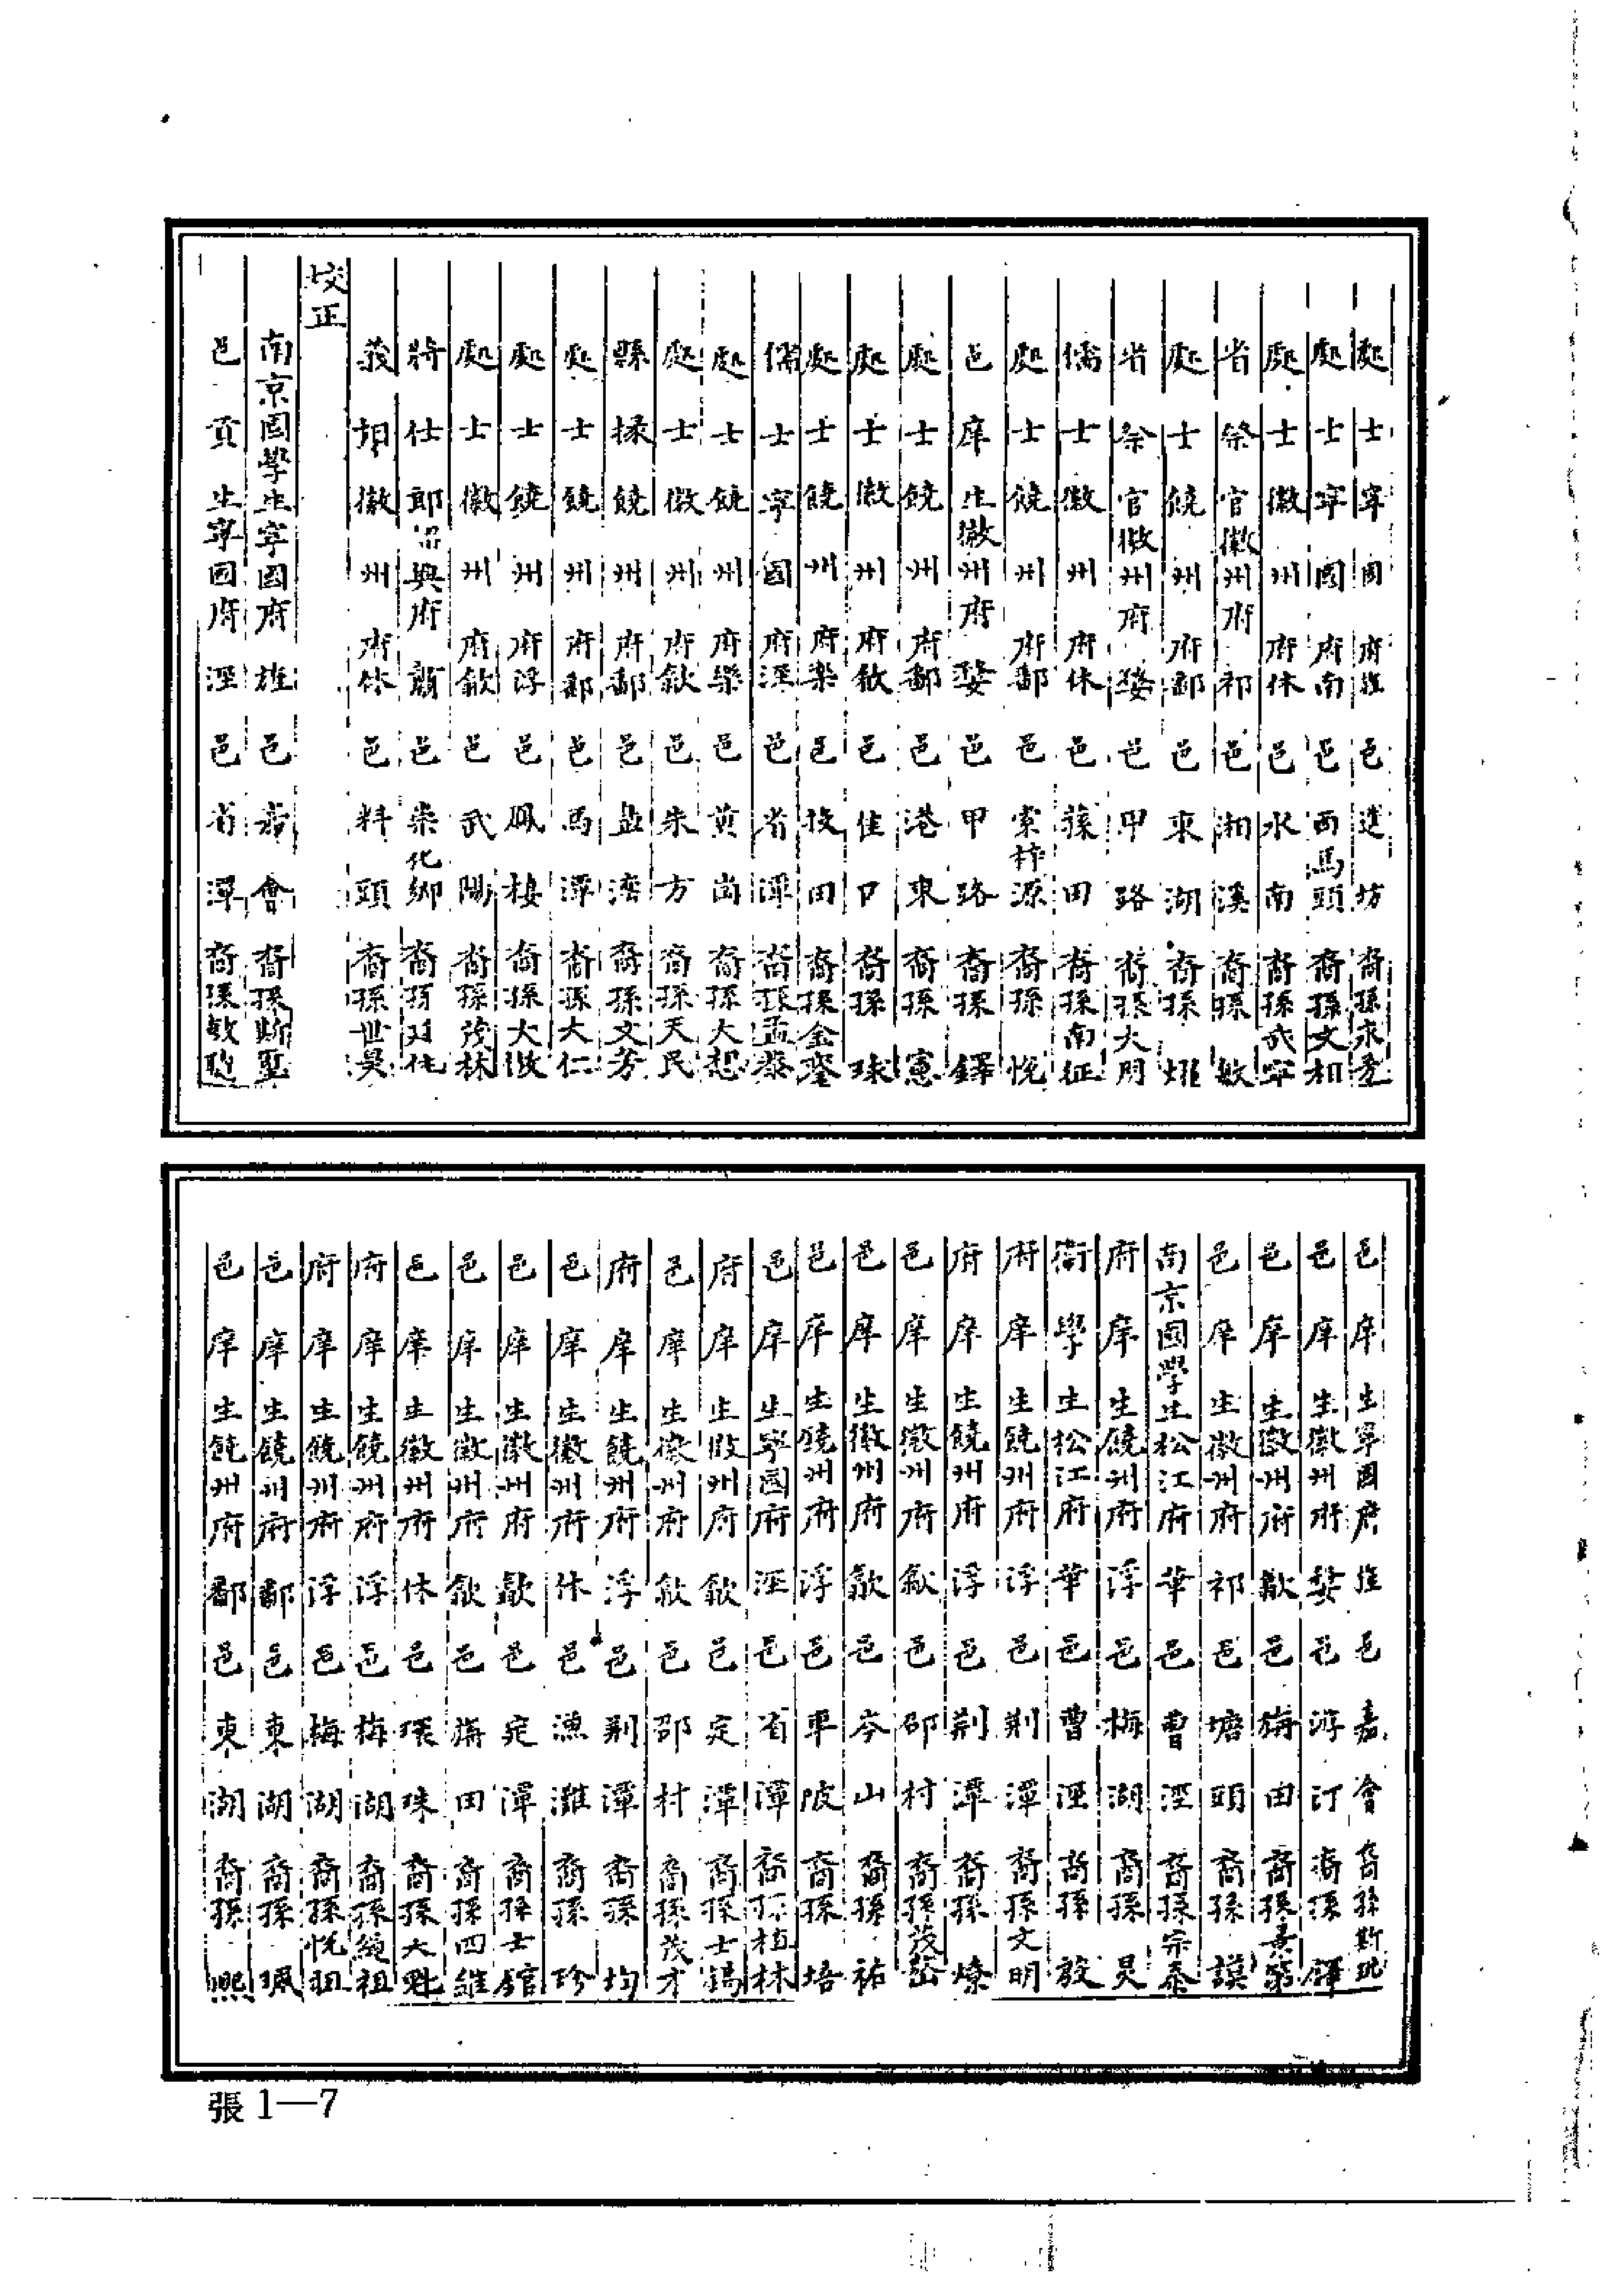 處士寧國府旌邑進坊裔孫永
處士寧國府南邑西馬頭裔孫文和
處士徽州府休邑水南裔孫武寧
省祭官徽州府祁邑湘溪裔孫敏
處士饒州府鄱邑東湖裔孫燿
省祭官徽州府婺邑甲路裔孫大用
儒士徽州府休邑蓀田裔孫南征
處士饒州府鄱邑索梓源裔孫悅
邑庠生徽州府婺邑甲路裔孫鐸
處士饒州府鄱邑港東裔孫憲
處士徽州府歙邑佳口裔孫球
處士饒州府樂邑牧田裔孫金鑾
儒士寧國府涇邑省潭裔孫孟泰
處士饒州府樂邑黃崗裔孫大恕
處士徽州府歙邑朱方裔孫天民
縣掾饒州府鄱邑盐湾裔孫文芳
處士饒州府鄱邑馬潭裔孫大仁
處士饒州府浮邑鳳樓裔孫大
處士徽州府歙邑武陽裔孫茂林
將仕郎紹興府蕭邑崇化鄉裔孫
義相徽州府休邑料頭裔孫世昊
挍正
南京國學生寧國府旌邑嘉會裔孫斯
邑貢生寧國府涇邑省潭裔孫敏
邑庠生寧國府旌邑嘉會裔孫斯
邑庠生徽州府婺邑游汀裔孫鐸
邑庠生徽州府歙邑梅田裔孫
邑庠生徽州府祁邑塘頭裔孫謨
南京國學生松江府華邑曹涇裔孫宗泰
府庠生饒州府浮邑梅湖裔孫昊
衛學生松江府華邑曹涇裔孫放
府庠生饒州府浮邑荆潭裔孫文明
府庠生饒州府浮邑荆潭裔孫燎
邑庠生徽州府歙邑邵村裔孫茂
邑庠生徽州府歙邑岑山裔孫祐
邑庠生饒州府浮邑車陂裔孫培
邑庠生寧國府涇邑省潭裔孫植林
府庠生徽州府歙邑定潭裔孫士
邑庠生徽州府歙邑邵村裔孫茂才
府庠生饒州府浮邑荆潭裔孫均
邑庠生徽州府休邑漁灘裔孫珍
邑庠生徽州府歙邑定潭裔孫士
邑庠生徽州府歙邑梅田裔孫四維
邑庠生徽州府休邑環珠裔孫大魁
府庠生饒州府浮邑梅湖裔孫繩祖
府庠生饒州府浮邑梅湖裔孫悅祖
邑庠生饒州府鄱邑東湖裔孫珮
邑庠生饒州府鄱邑東湖裔孫熙
張1—7